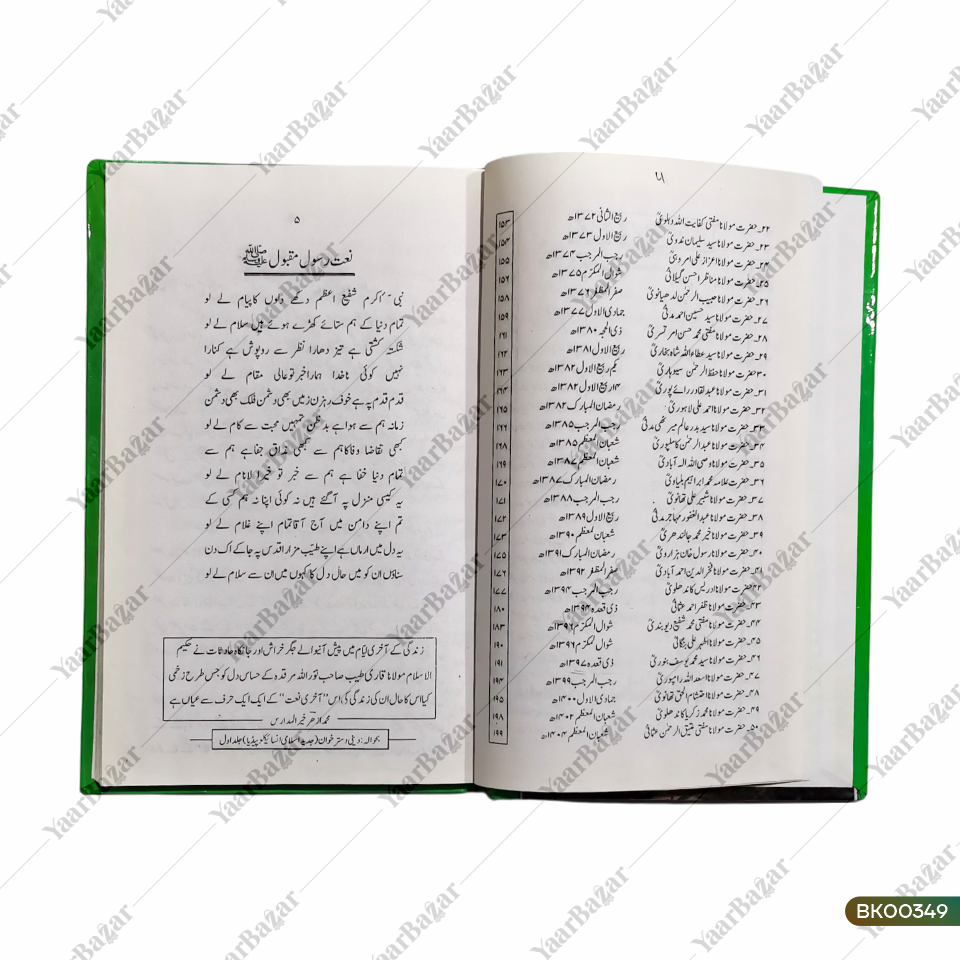 ۵
نعت رسول مقبول ﷺ
نبی اکرم شفیع اعظم دکھے دلوں کا پیام لے لو
تمام دنیا کے ہم ستائے کھڑے ہوئے ہیں سلام لے لو
شکستہ کشتی ہے تیز دھارا نظر سے روپوش ہے کنارا
نہیں کوئی ناخدا ہمارا خبر تو عالی مقام لے لو
قدم قدم پہ ہے خوف رہزن زمیں بھی دشمن فلک بھی دشمن
زمانہ ہم سے ہوا ہے بدظن تمہیں محبت سے کام لے لو
کبھی تقاضا وفا کا ہم سے کبھی مذاق جفا ہے ہم سے
تمام دنیا خفا ہے ہم سے خبر تو خیرالانام لے لو
یہ کیسی منزل پہ آگئے ہیں نہ کوئی اپنا نہ ہم کسی کے
تم اپنے دامن میں آج آقا تمام اپنے غلام لے لو
یہ دل میں ارماں ہے اپنے طیب مزار اقدس پہ جا کے اک دن
سناؤں ان کو میں حال دل کا کہوں میں ان سے سلام لے لو
زندگی کے آخری ایام میں پیش آنیوالے جگر خراش اور جانکاہ حادثات نے حکیم
الاسلام مولانا قاری طیب صاحب نور اللہ مرقدہ کے حساس دل کو جس طرح زخمی
کیا اس کا حال ان کی زندگی کی اس "آخری نعت" کے ایک ایک حرف سے عیاں ہے
محمد ازھر خیر المدارس
بحوالہ: دینی دسترخوان (جدید اسلامی انسائیکلو پیڈیا) جلد اول
۲۲۔حضرت مولانا مفتی کفایت اللہ دہلویؒ ربیع الثانی ۱۳۷۲ھ ۱۵۳
۲۳۔حضرت مولانا سید سلیمان ندویؒ ربیع الاول ۱۳۷۳ھ ۱۵۴
۲۴۔حضرت مولانا اعزاز علی امروہیؒ رجب المرجب ۱۳۷۴ھ ۱۵۵
۲۵۔حضرت مولانا مناظر احسن گیلانیؒ شوال المکرم ۱۳۷۵ھ ۱۵۶
۲۶۔حضرت مولانا حبیب الرحمن لدھیانویؒ صفر المظفر ۱۳۷۶ھ ۱۵۸
۲۷۔حضرت مولانا سید حسین احمد مدنیؒ جمادی الاول ۱۳۷۷ھ ۱۵۹
۲۸۔حضرت مولانا مفتی محمد حسن امرتسریؒ ذی الحجہ ۱۳۸۰ھ ۱۶۱
۲۹۔حضرت مولانا سید عطاء اللہ شاہ بخاریؒ ربیع الاول ۱۳۸۱ھ ۱۶۲
۳۰۔حضرت مولانا حفظ الرحمن سیوہارویؒ یکم ربیع الاول ۱۳۸۲ھ ۱۶۳
۳۱۔حضرت مولانا عبدالقادر رائے پوریؒ ۱۴ ربیع الاول ۱۳۸۲ھ ۱۶۴
۳۲۔حضرت مولانا احمد علی لاہوریؒ رمضان المبارک ۱۳۸۲ھ ۱۶۵
۳۳۔حضرت مولانا سید بدر عالم میرٹھی مدنیؒ رجب المرجب ۱۳۸۵ھ ۱۶۶
۳۴۔حضرت مولانا عبدالرحمن کاملپوریؒ شعبان المعظم ۱۳۸۵ھ ۱۶۸
۳۵۔حضرت مولانا وصی اللہ الہ آبادیؒ شعبان المعظم ۱۳۸۷ھ ۱۶۹
۳۶۔حضرت علامہ محمد ابراہیم بلیاویؒ رمضان المبارک ۱۳۸۷ھ ۱۷۰
۳۷۔حضرت مولانا شبیر علی تھانویؒ رجب المرجب ۱۳۸۸ھ ۱۷۱
۳۸۔حضرت مولانا عبدالغفور مہاجر مدنیؒ ربیع الاول ۱۳۸۹ھ ۱۷۲
۳۹۔حضرت مولانا خیر محمد جالندھریؒ شعبان المعظم ۱۳۹۰ھ ۱۷۳
۴۰۔حضرت مولانا رسول خان ہزارویؒ رمضان المبارک ۱۳۹۱ھ ۱۷۵
۴۱۔حضرت مولانا فخر الدین احمد آبادیؒ صفر المظفر ۱۳۹۲ھ ۱۷۶
۴۲۔حضرت مولانا ادریس کاندھلویؒ رجب المرجب ۱۳۹۴ھ ۱۷۷
۴۳۔حضرت مولانا ظفر احمد عثمانیؒ ذی قعدہ ۱۳۹۴ھ ۱۸۰
۴۴۔حضرت مولانا مفتی محمد شفیع دیوبندیؒ شوال المکرم ۱۳۹۶ھ ۱۸۳
۴۵۔حضرت مولانا اطہر علی بنگالیؒ شوال المکرم ۱۳۹۶ھ ۱۹۰
۴۶۔حضرت مولانا سید محمد یوسف بنوریؒ ذی قعدہ ۱۳۹۷ھ ۱۹۱
۴۷۔حضرت مولانا اسعد اللہ رامپوریؒ رجب المرجب ۱۳۹۹ھ ۱۹۴
۴۸۔حضرت مولانا احتشام الحق تھانویؒ جمادی الاول ۱۴۰۰ھ ۱۹۵
۴۹۔حضرت مولانا محمد زکریا کاندھلویؒ شعبان المعظم ۱۴۰۲ھ ۱۹۸
۵۰۔حضرت مولانا مفتی عتیق الرحمن عثمانیؒ شعبان المعظم ۱۴۰۴ھ ۱۹۹
YaarBazar
BK00349